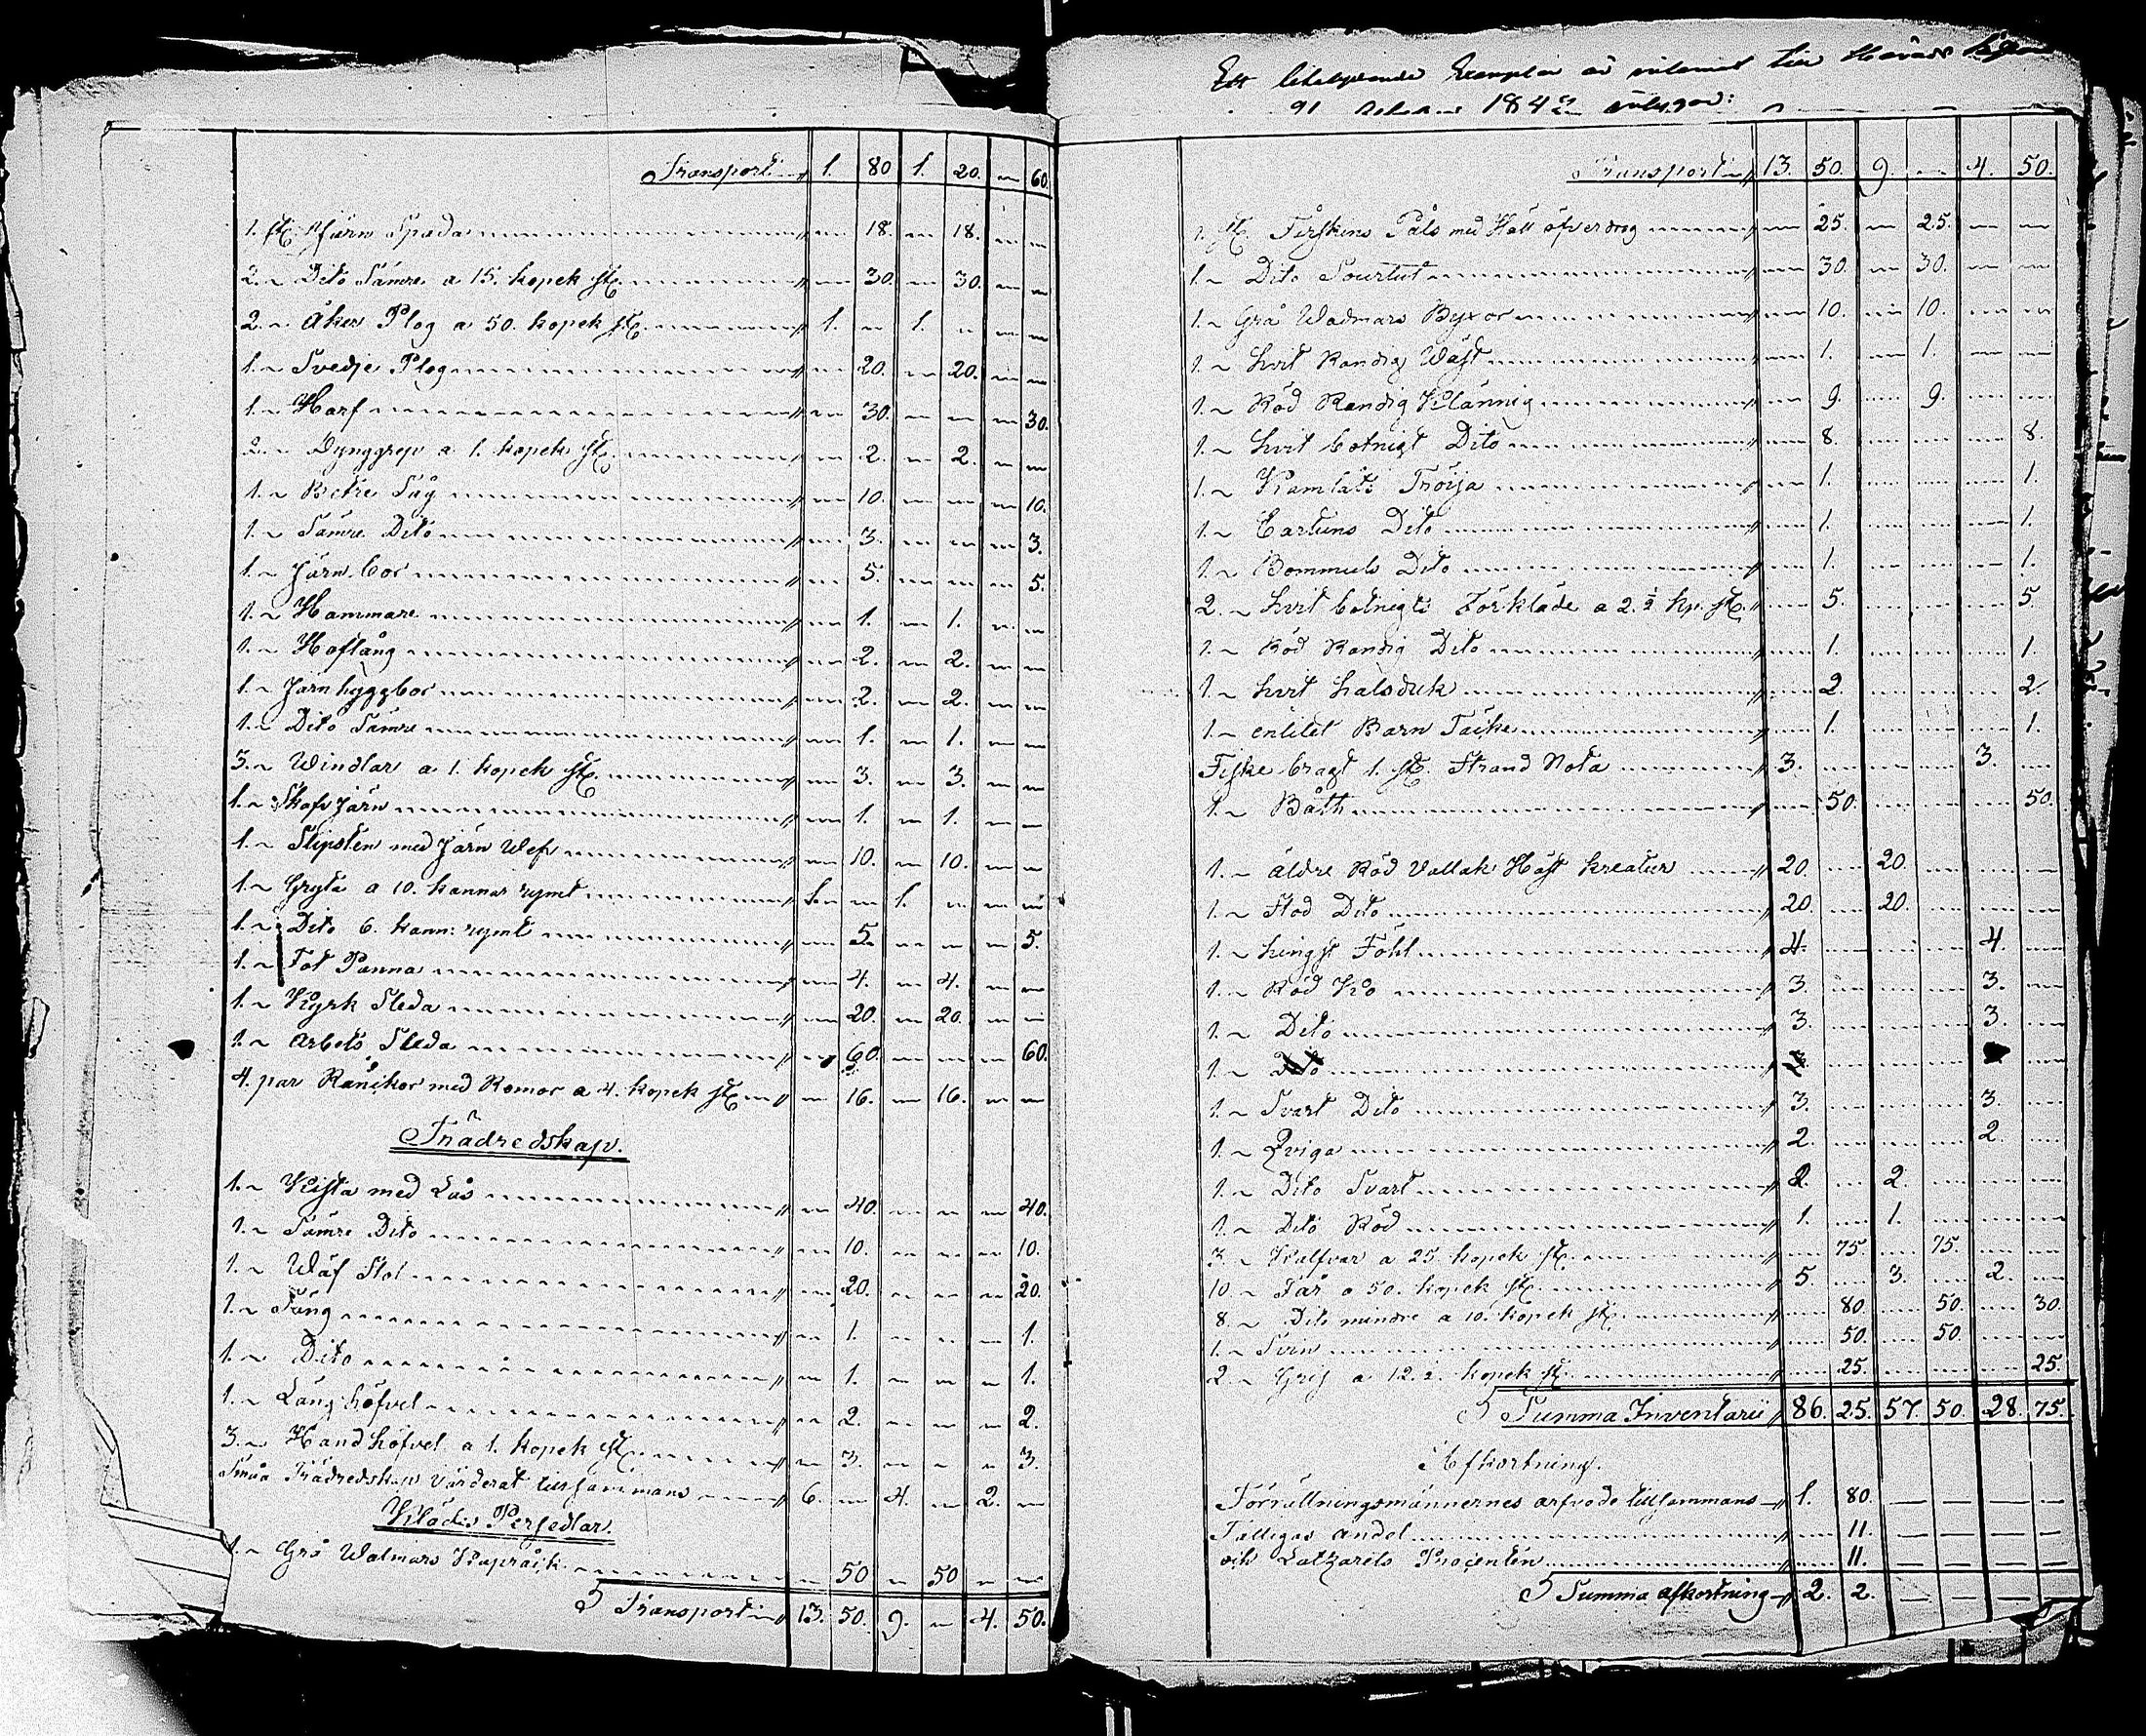 Transport 1. 80 1. 20. 60.
1. st. Järn Spada 18. 18.
2. Dito Sämre a 15. kopek st. 30. 30.
2. Åker Plog a 50. kopek st. 1. 1.
1. Svedje Plog 20. 20.
1. Harf 30. 30.
2. Dynggrep a 1. kopek st. 2. 2.
1. Betre Såg 10. 10.
1. Sämre Dito 3. 3.
1. Järn bor 5. 5.
1. Hammare 1. 1.
1. Hoftång 2. 2.
1. Järn hyggbor 2. 2.
1. Dito Sämre 1. 1.
3. Windlar a 1. kopek st. 3. 3.
1. Skaf Järn 1. 1.
1. Slipsten med Järn Wef 10. 10.
1. Gryta a 10. kannor rymt 1. 1.
1. Dito 6. kann: rymt 5. 5.
1. Fot Panna 4. 4.
1. Kyrk Sleda 20. 20.
1. Arbets Sleda 60. 60.
4. par Rankor med Romor a 4. kopek st. 16. 16.
Trädredskap.
1. Kista med Lås 40. 40.
1. Sämre Dito 10. 10.
1. Wäf Stol 20. 20.
1. Säng 1. 1.
1. Dito 1. 1.
1. Lång höfvel 2. 2.
3. Hand höfvel a 1. kopek st. 3. 3.
Små Trädredskap värderat tillsammans 6. 4. 2.
Kläds Persedlar.
1. Grå Walmars Kapråck 50 50
Transport 13. 50. 9. 4. 50.
Ett likalydande Exemplar
184
Transport 13. 50. 9. 4. 50.
1. st. Fårskins Päls med Hall öfverdrag 25. 25.
1. Dito Sourtut 30. 30.
1. Grå Wadmars Byxor 10. 10.
1. hvit Randig Wäst 1. 1.
1. Röd Randig Klännig 9. 9.
1. hvit botnigt Dito 8. 8.
1. Kamlåts Tröija 1. 1.
1. Cartuns Dito 1. 1.
1. Bommuls Dito 1. 1.
2. hvit botnigt Förkläde a 2.½ kp. st. 5. 5.
1. Röd Randig Dito 1. 1.
1. hvit halsduk 2. 2.
1. enlitet Barn Täcke 1. 1.
Fiske bragt 1. st. Strand Nota 3. 3.
1. Båth 50. 50.
1. äldre Röd Vallak Häst kreatur 20. 20.
1. Stod Dito 20. 20.
1. hingst Föhl 4. 4.
1. Röd Ko 3. 3.
1. Dito 3. 3.
1. Dito 3.
1. Svart Dito 3. 3.
1. Qviga 2. 2.
1. Dito Svart 2. 2.
1. Dito Röd 1. 1.
3. Kalfvar a 25 kopek st. 75. 75.
10. Får a 50. kopek st. 5. 3. 2.
8. Dito mindre a 10. kopek st. 80. 50. 30.
1. Svin 50. 50.
2 Gris a 12.½. kopek st. 25. 25.
Summa Inventarii 86. 25. 57. 50. 28. 75.
Afkortning.
Förrättningsmännernes arfvode tillsammans 1. 80.
Fattigas andel 11.
och Latzarets Procenten 11.
Summa afkortning 2. 2.